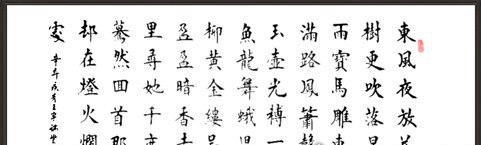 東風夜放
樹更吹落
雨寶馬雕
滿路鳳簫
玉壺光轉一
魚龍舞蛾
柳黃金縷
盈盈暗香去
里尋她千
驀然回首那
却在燈火闌
處
辛弃疾青玉案